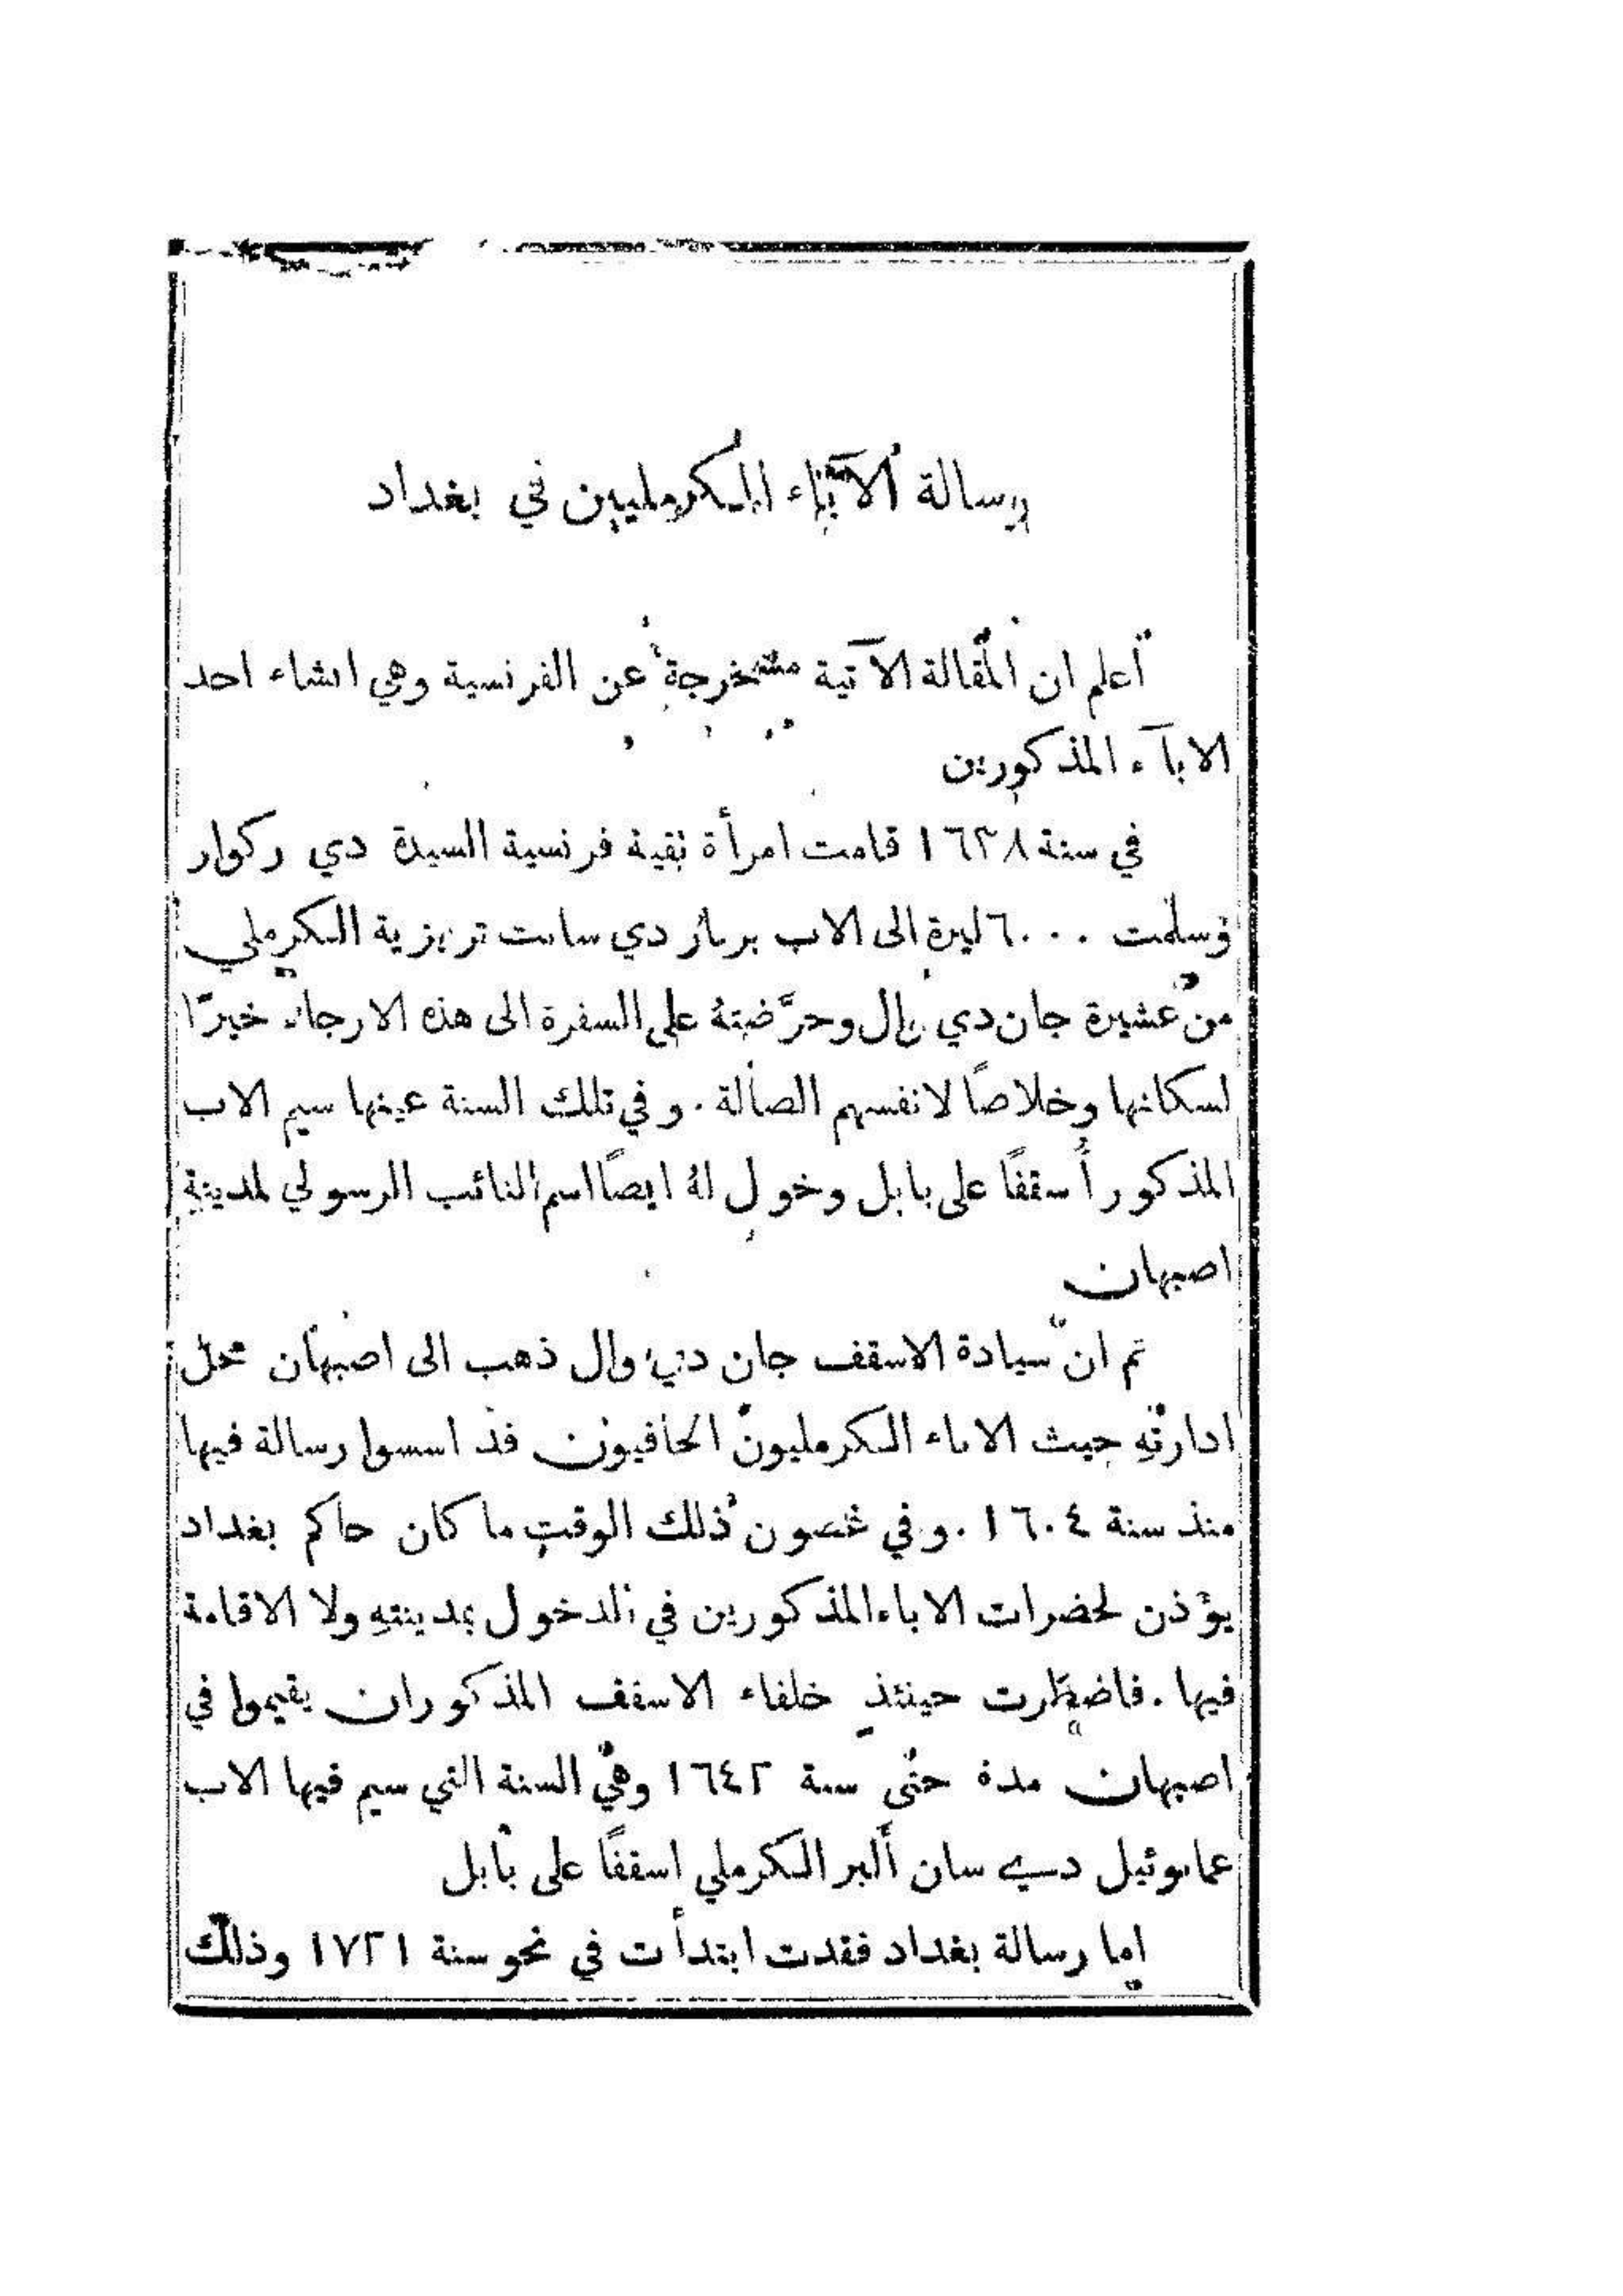 رسالة الآباء الكرمليين في بغداد
اعلم ان المقالة الآتية مستخرجة عن الفرنسية وهي انشاء احد
الابآء المذكورين
في سنة ١٦٣٨ قامت امرأة تقية فرنسية السيدة دي ركوار
وسلمت ٦٠٠٠ ليرة الى الاب برنار دي سانت تريزية الكرملي
من عشيرة جان دي وال وحرَّضتهُ على السفرة الى هذه الارجاء خيرًا
لسكانها وخلاصًا لانفسهم الضالة . وفي تلك السنة عينها سيم الاب
المذكور أسقفًا على بابل وخول لهُ ايضًا اسم النائب الرسولي لمدينة
اصبهان
ثم ان سيادة الاسقف جان دي وال ذهب الى اصبهان محل
ادارتهِ حيث الاباء الكرمليون الحافيون قد اسسوا رسالة فيها
منذ سنة ١٦٠٤ . وفي غصون ذلك الوقت ما كان حاكم بغداد
يؤذن لحضرات الاباء المذكورين في الدخول بمدينتهِ ولا الاقامة
فيها . فاضطرت حينئذٍ خلفاء الاسقف المذكور ان يقيموا في
اصبهان مدة حتى سنة ١٦٤٢ وهي السنة التي سيم فيها الاب
عمانوئيل دي سان ألبر الكرملي اسقفًا على بابل
اما رسالة بغداد فقدت ابتدأت في نحو سنة ١٧٢١ وذلك